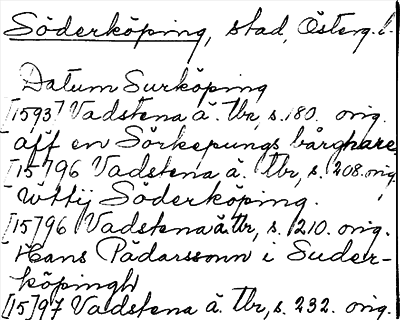 Söderköping, stad, Österg. l.
Datum Surköping
[1593] Vadstena ä. tbr, s. 180. orig.
aff en Sörkepungs bårghare
[15]796 Vadstena ä. tbr, s. 208. orig.
wttij Söderköping.
[15]96 Vadstena ä. tbr, s. 210. orig.
Hans Pädarssonn i Suder-
köpingh
[15]97 Vadstena ä. tbr, s. 232. orig.